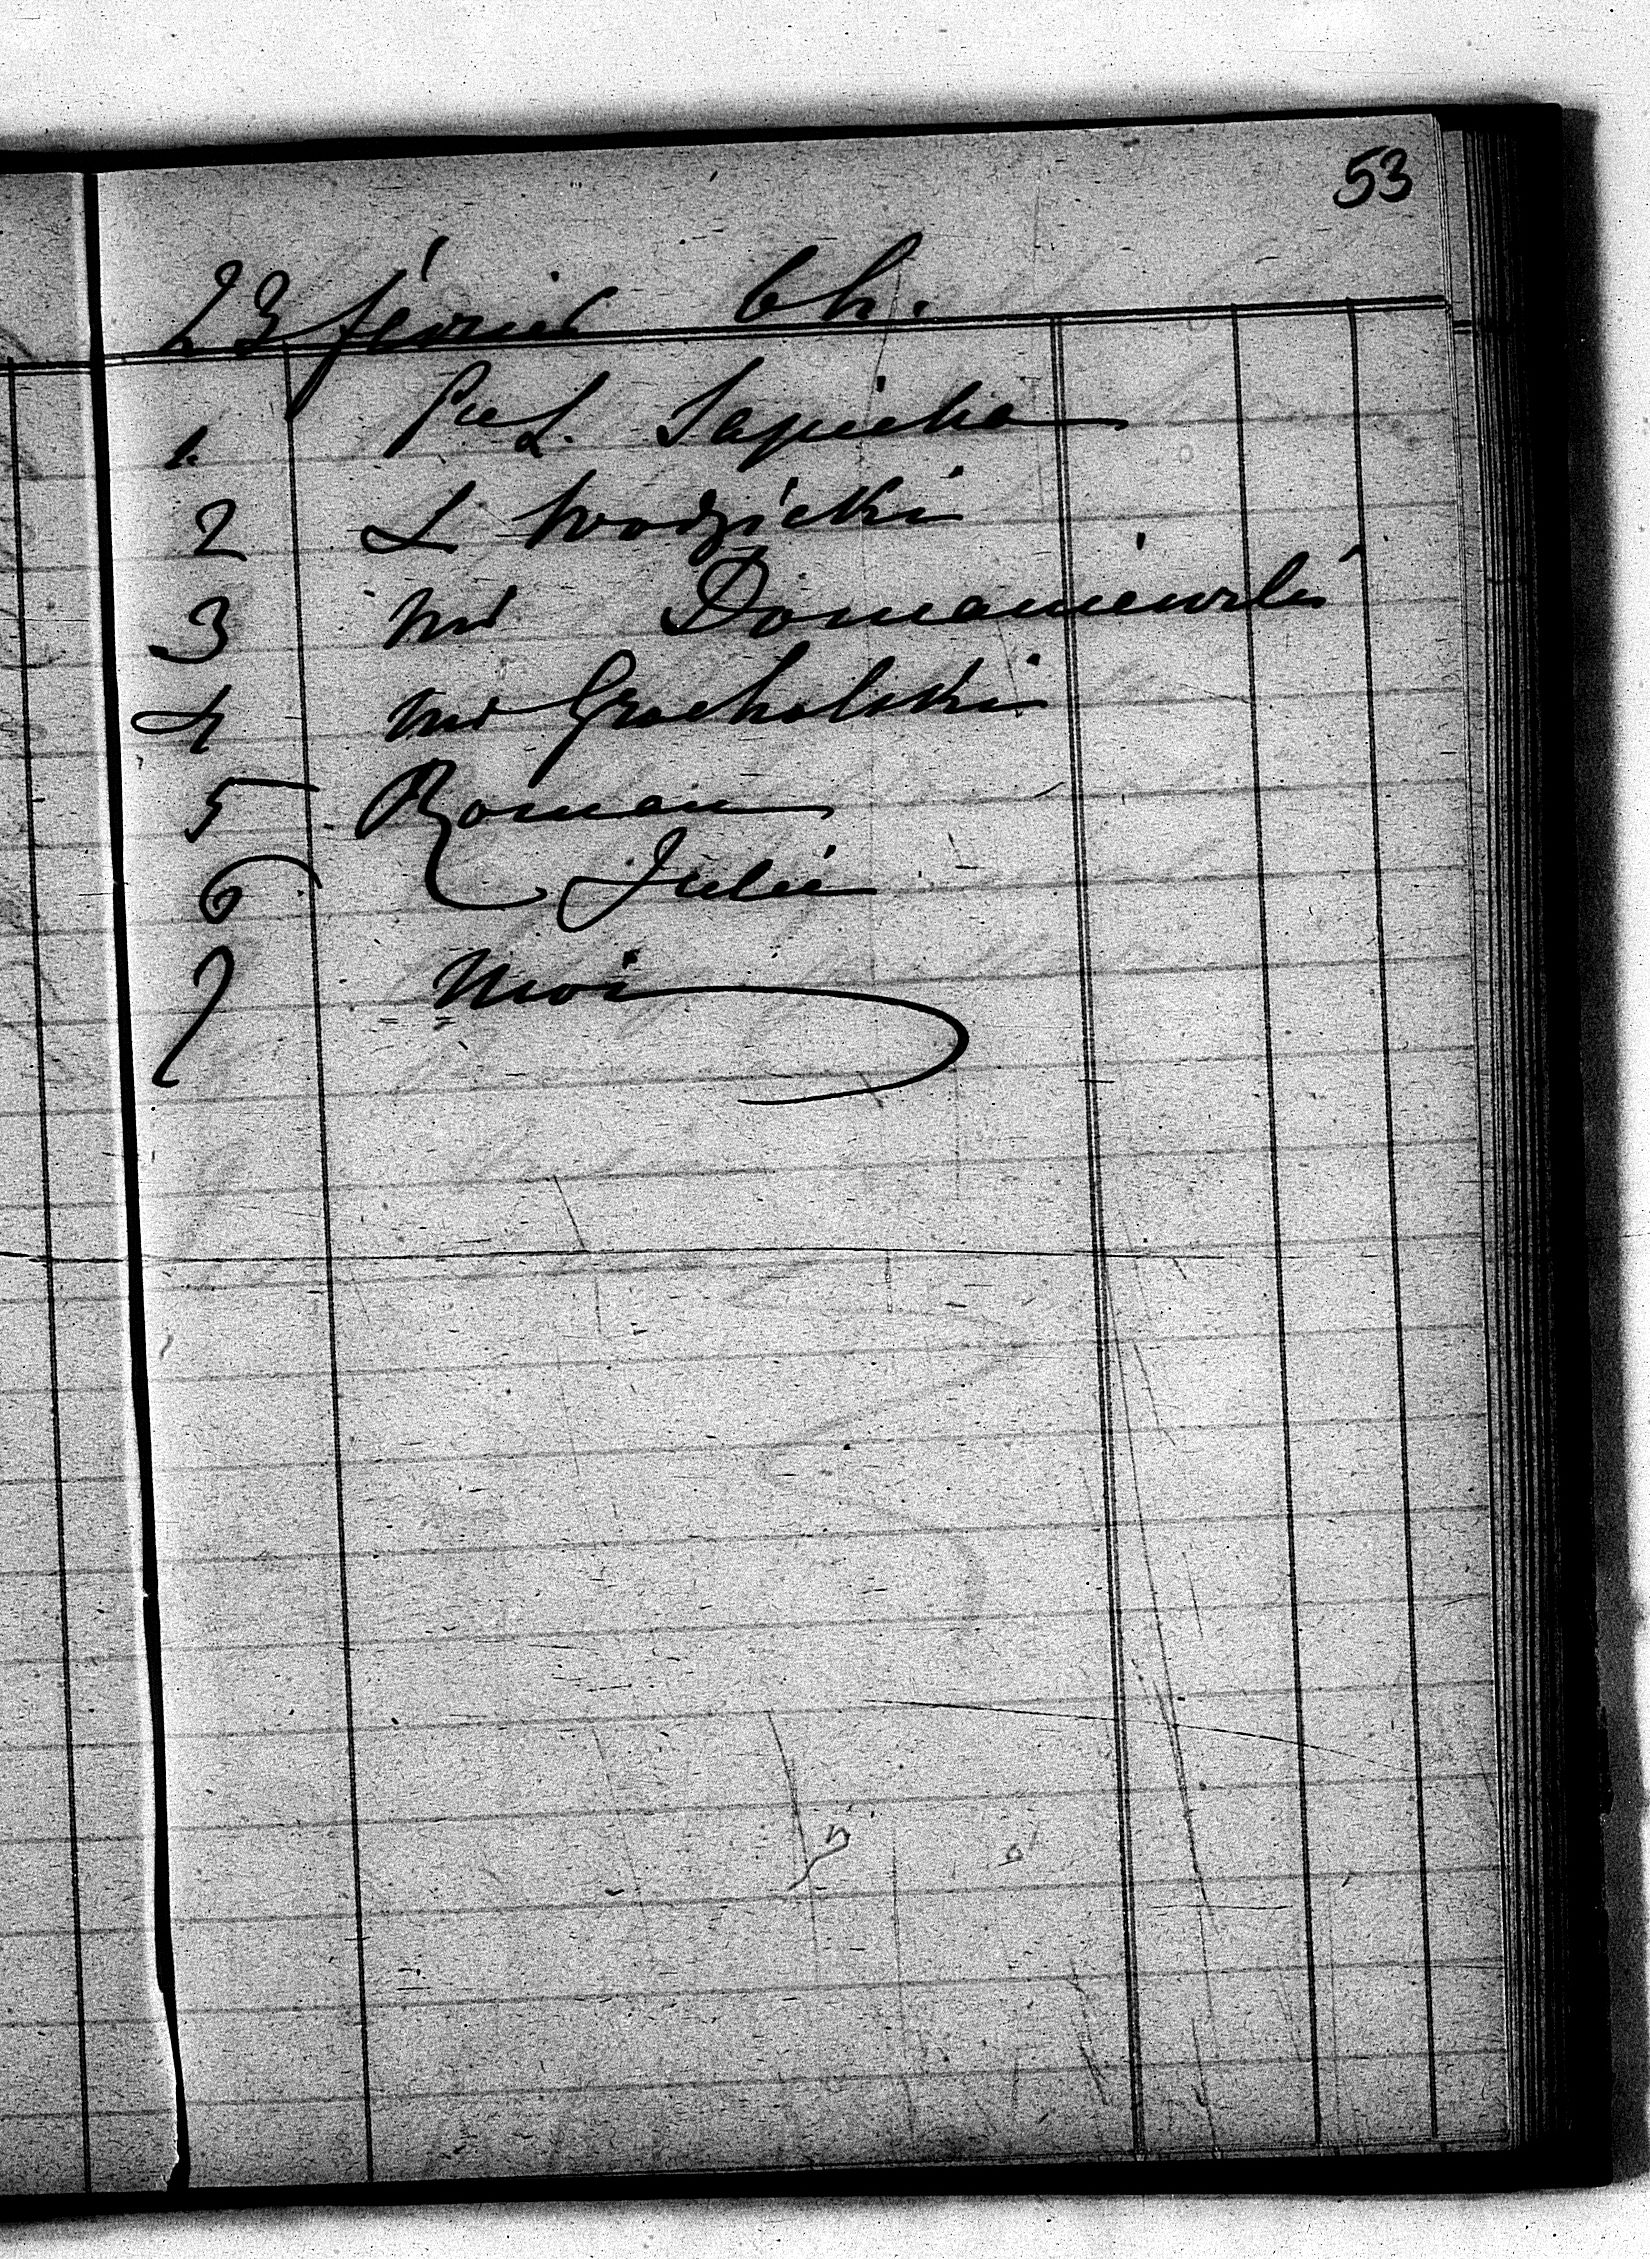 53
23 février 6h.
1. Pce L. Sapieha
2 L Wodzicki
3 Mr Domaniewski
4 Mr Grocholski
5 Roman
6 Julie
7 Moi